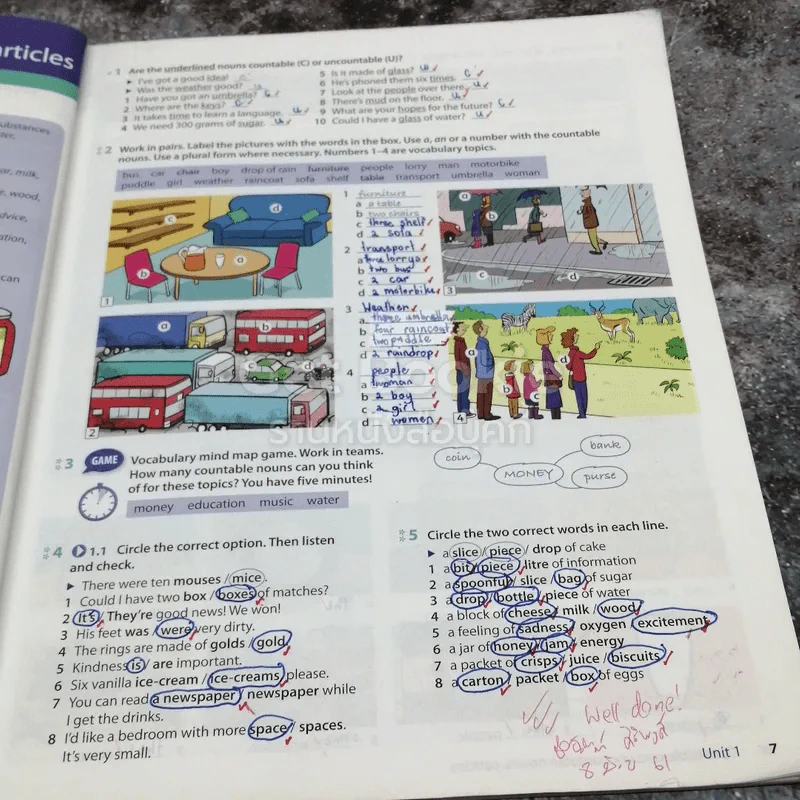 articles
1 Are the underlined nouns countable (C) or uncountable (U)?
► I've got a good idea! C
► Was the weather good? U
1 Have you got an umbrella? C
2 Where are the keys? C
3 It takes time to learn a language. U
4 We need 300 grams of sugar. U
5 Is it made of glass? U
6 He's phoned them six times. C
7 Look at the people over there. U
8 There's mud on the floor. U
9 What are your hopes for the future? C
10 Could I have a glass of water? U
2 Work in pairs. Label the pictures with the words in the box. Use a, an or a number with the countable
nouns. Use a plural form where necessary. Numbers 1–4 are vocabulary topics.
bus car chair boy drop of rain furniture people lorry man motorbike
puddle girl weather raincoat sofa shelf table transport umbrella woman
1 furniture
a a table
b two chairs
c three shelf
d a sofa
2 transport
a three lorrys
b two bus
c a car
d a motorbike
3 Weather
a three umbrella
b four raincoat
c two puddle
d a raindrop
4 people
a woman
b a boy
c a girl
d women
3 GAME Vocabulary mind map game. Work in teams.
How many countable nouns can you think
of for these topics? You have five minutes!
money education music water
coin
MONEY
bank
purse
4 1.1 Circle the correct option. Then listen
and check.
► There were ten mouses / mice.
1 Could I have two box / boxes of matches?
2 It's / They're good news! We won!
3 His feet was / were very dirty.
4 The rings are made of golds / gold.
5 Kindness is / are important.
6 Six vanilla ice-cream / ice-creams, please.
7 You can read a newspaper / newspaper while
I get the drinks.
8 I'd like a bedroom with more space / spaces.
It's very small.
5 Circle the two correct words in each line.
► a slice / piece / drop of cake
1 a bit / piece / litre of information
2 a spoonful / slice / bag of sugar
3 a drop / bottle / piece of water
4 a block of cheese / milk / wood
5 a feeling of sadness / oxygen / excitement
6 a jar of honey / jam / energy
7 a packet of crisps / juice / biscuits
8 a carton / packet / box of eggs
Well done!
Unit 1 7
ร้านหนังสือบีคิท